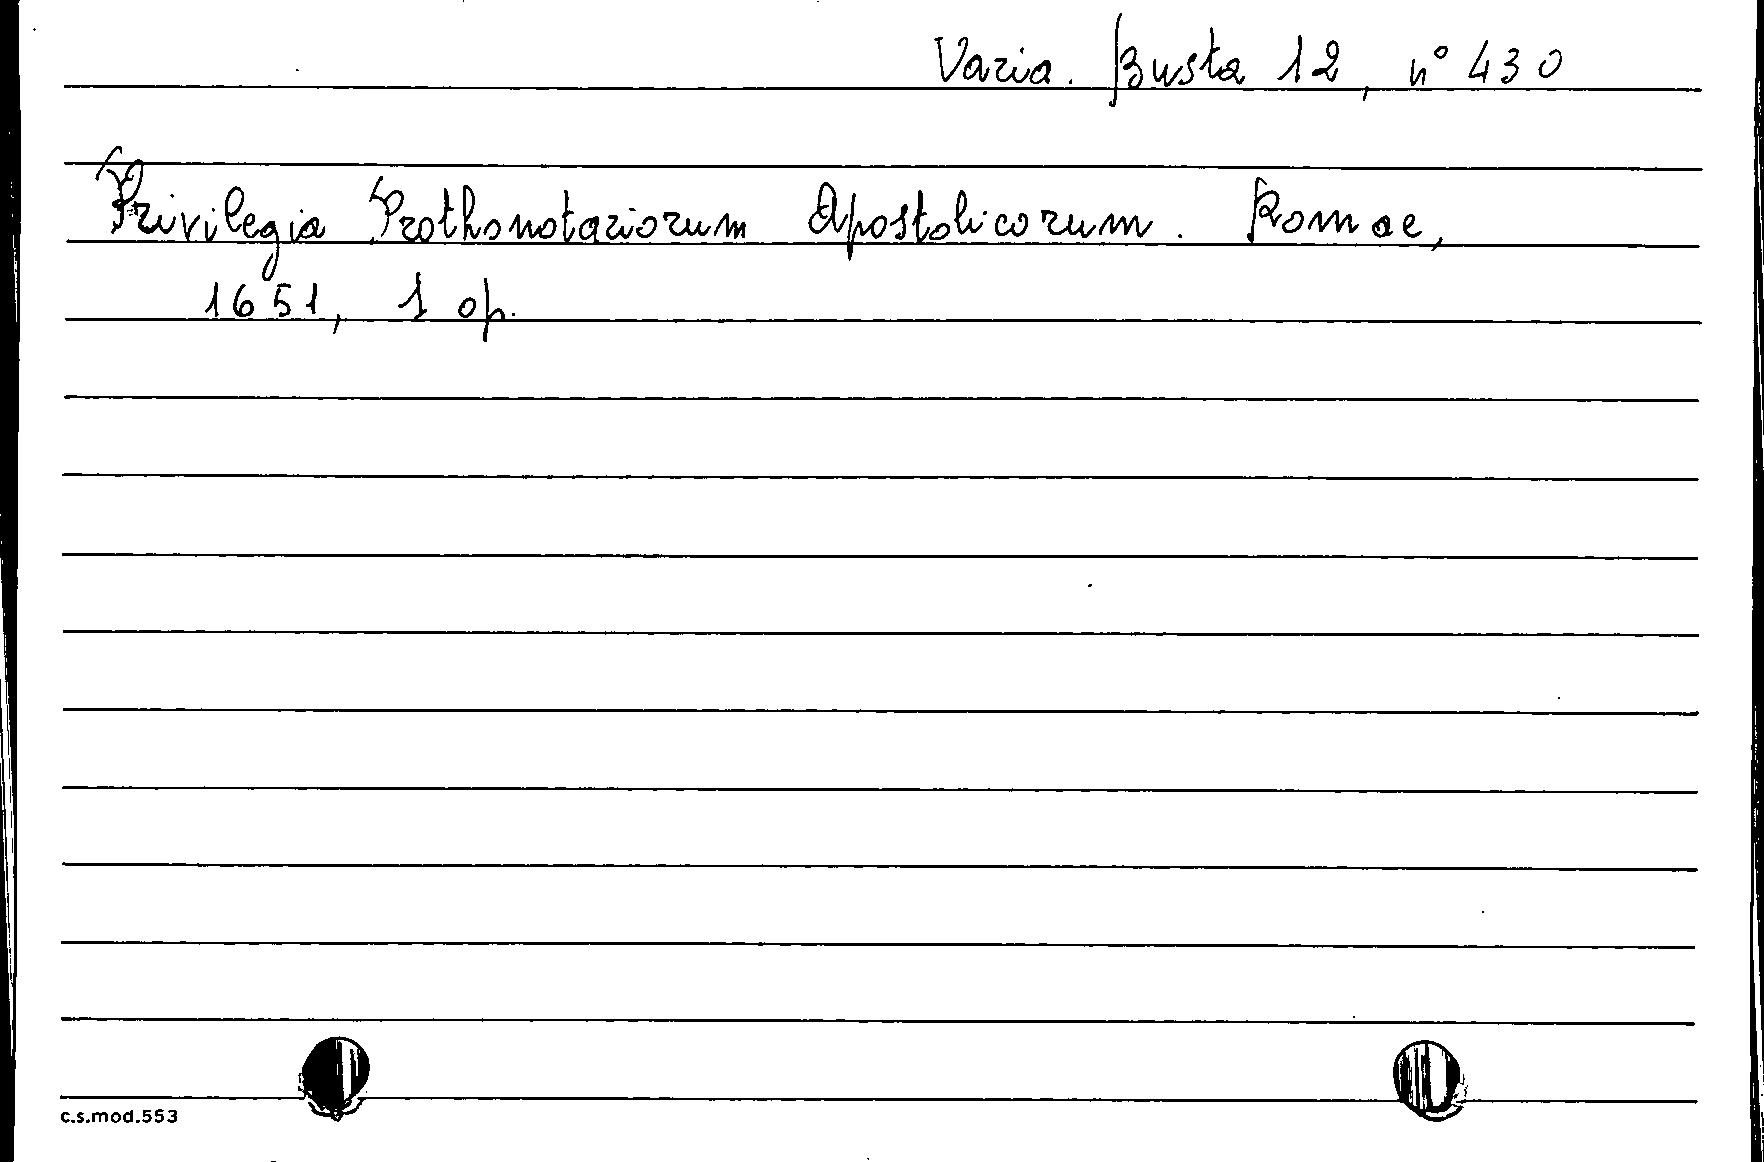 Varia. Busta 12, n° 430
Privilegia Prothonotariorum Apostolicorum. Romae,
1651, 1 op.
c.s.mod.553